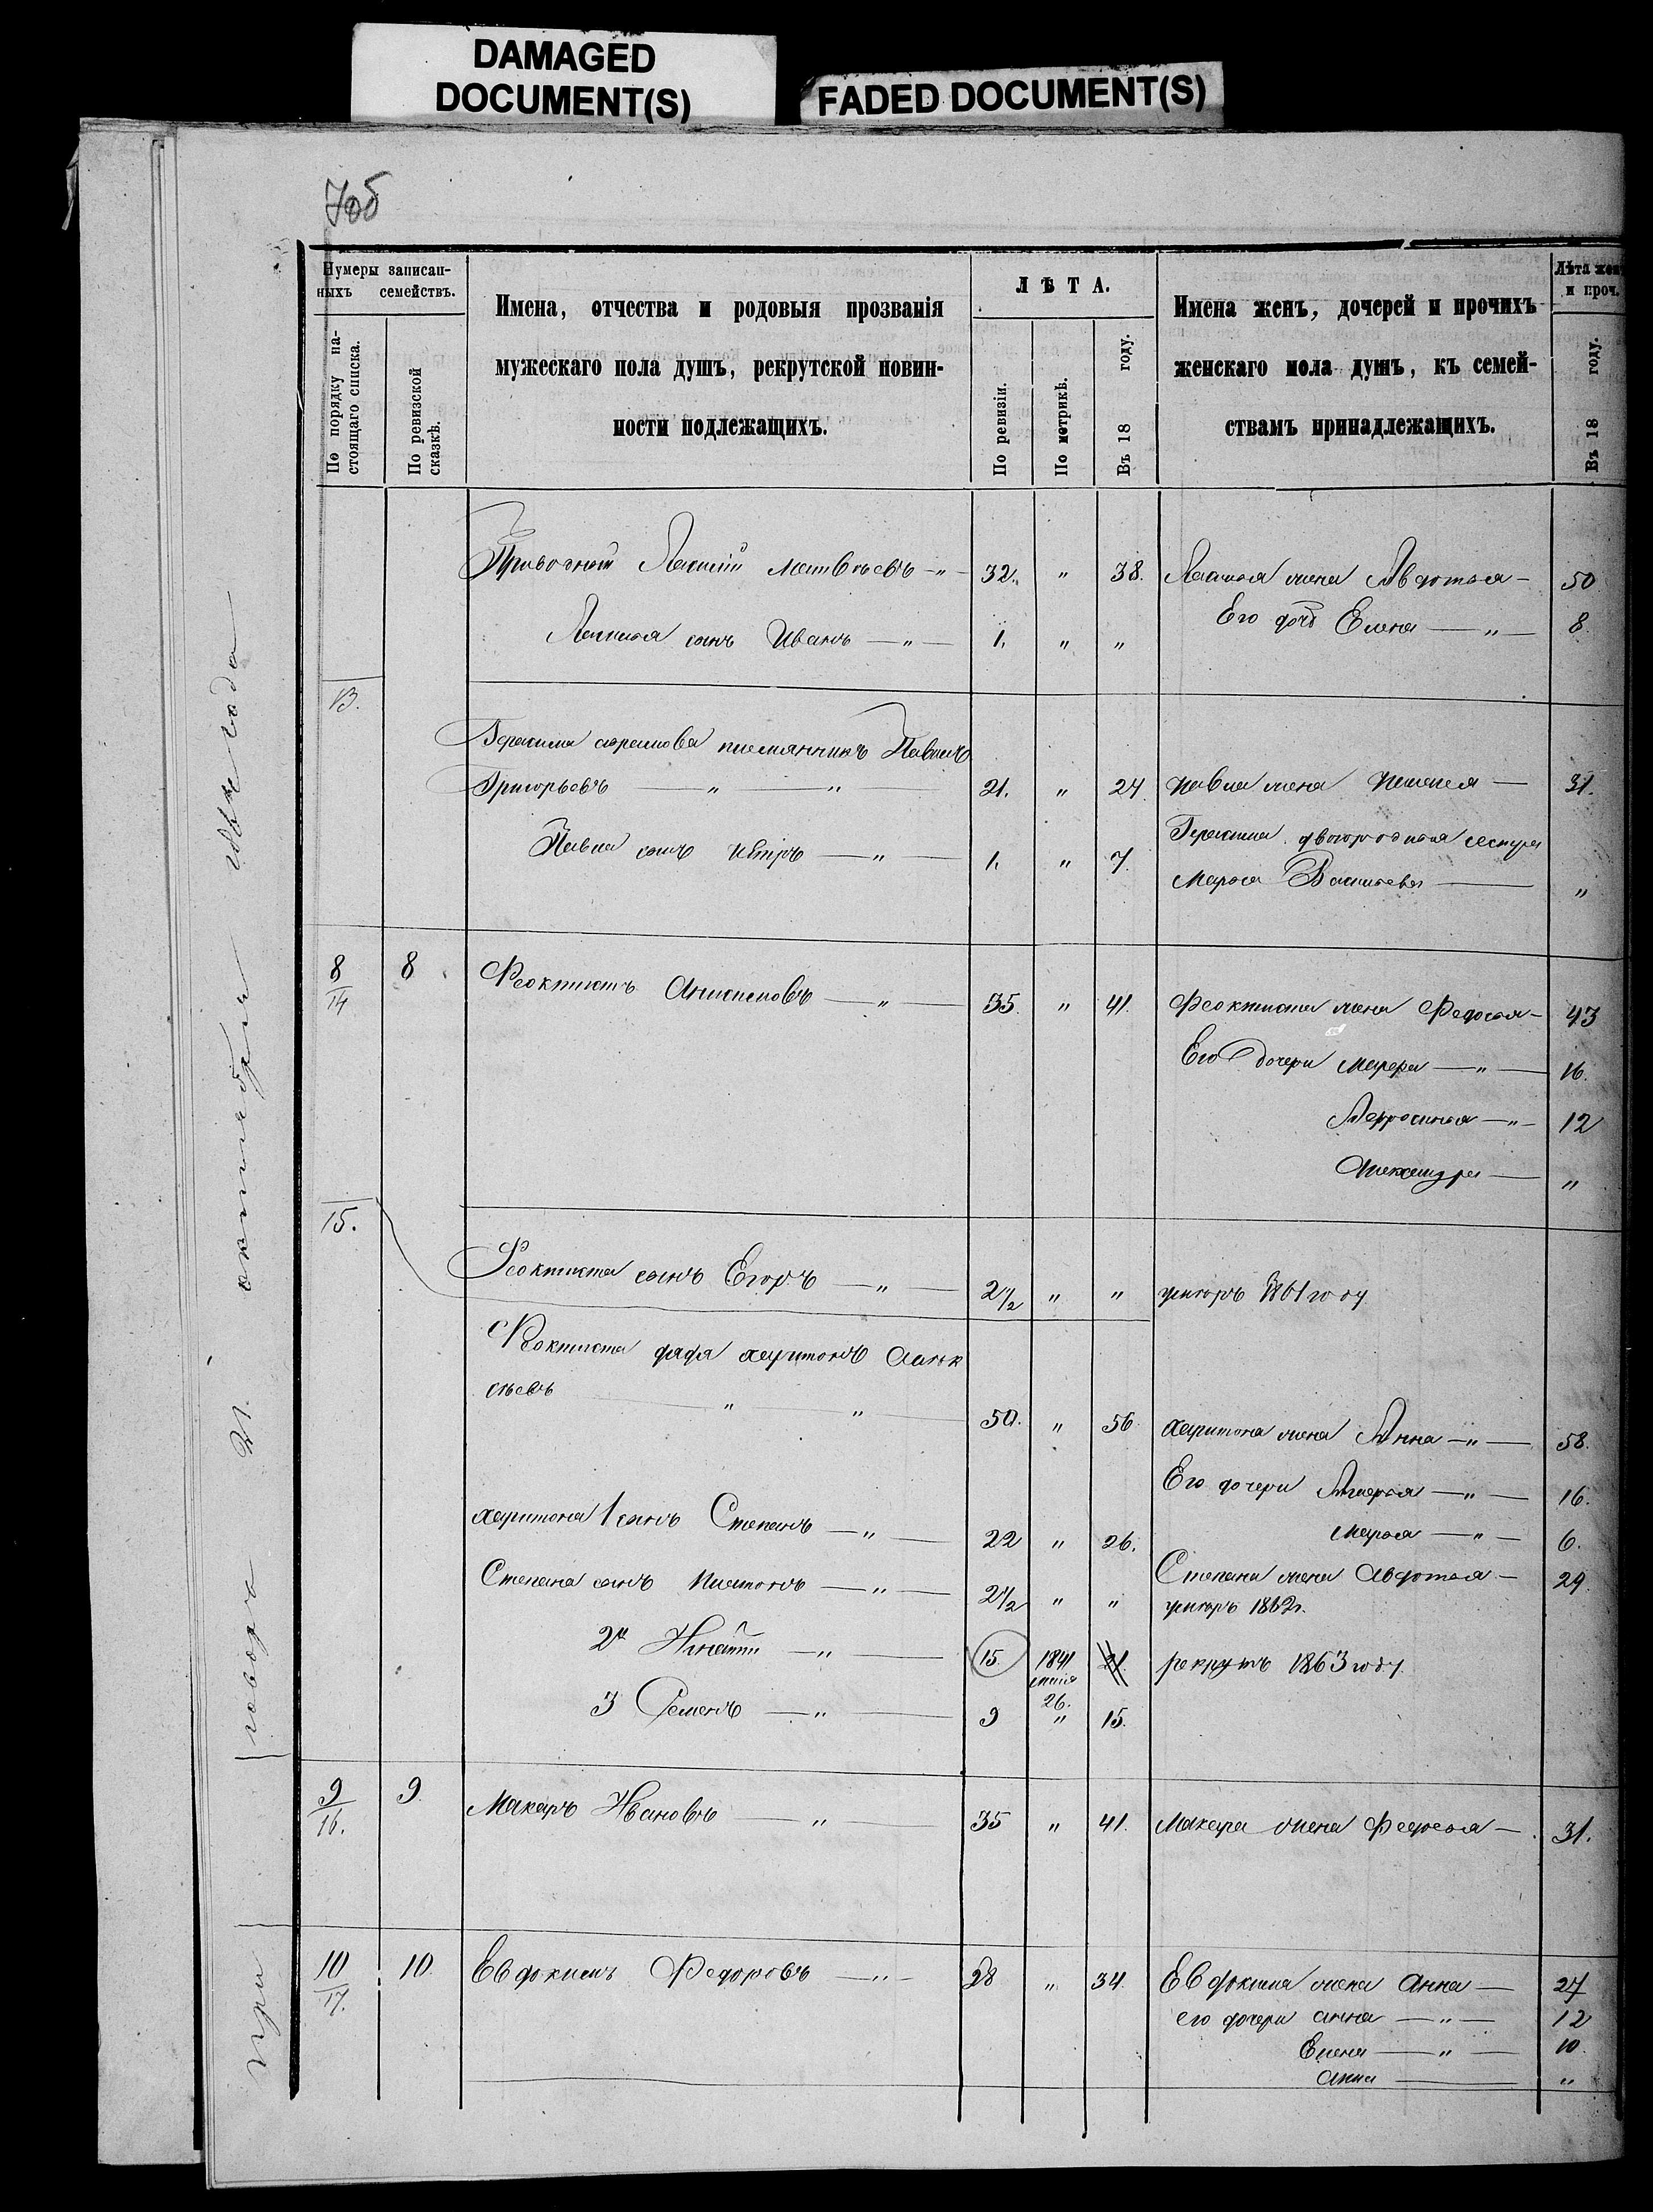 DAMAGED
DOCUMENT(S)
FADED DOCUMENT(S)
Нумеры записан-
ныхъ семействъ.
По порядку на-
стоящаго списка.
По ревизской
сказкѣ.
Имена, отчества и родовыя прозванія
мужескаго пола душъ, рекрутской повин-
ности подлежащихъ.
ЛѢТА.
По ревизіи.
По метрикѣ.
Въ 18 году.
Имена женъ, дочерей и прочихъ
женскаго пола душъ, къ семей-
ствамъ принадлежащихъ.
Лѣта жен
и проч.
Въ 18 году.
Матвѣевъ — " — 32. " 38. жена Авдотья — 50
Его дочь Елена — " — 8.
сынъ Иванъ — " — 1. " "
13.
Герасима племянникъ Павелъ
Григорьевъ — " — " — 21. " 24. Павла жена — 31.
Павла сынъ Петръ — " — 1. " 7.
Герасима двоюродная сестра
Марья Васильева — "
8/14 8 Феоктистъ — " — 35. " 41. Феоктиста жена Федосья — 43
Его дочери — " — 16.
— " — 12
Александра — "
15.
Феоктиста сынъ Егоръ — " — 2 1/2 " " умеръ 1861 году
Феоктиста дядя Харитонъ Алек
сѣевъ — " — " — 50. " 56 Харитона жена Анна — " — 58.
Его дочери — " — 16.
Марья — " — 6.
Харитона 1 сынъ Степанъ — " — 22 " 26.
Степана жена Авдотья — 29.
Степана сынъ Платонъ — " — 2 1/2 " " умеръ 1862 г.
2й — " — 15. 1841 21. рекрутъ 1863 году.
26.
3 Семенъ — " — 9 " 15.
9/16. 9. Макаръ Ивановъ — " — 35 " 41. Макара жена Федосья — 31.
10/17. 10. Евдокимъ Федоровъ — " — 28 " 34. Евдокима жена Анна — 27
его дочери Анна — " — 12
Елена — " — 10.
Анна — "
При
говора 21. октября
года